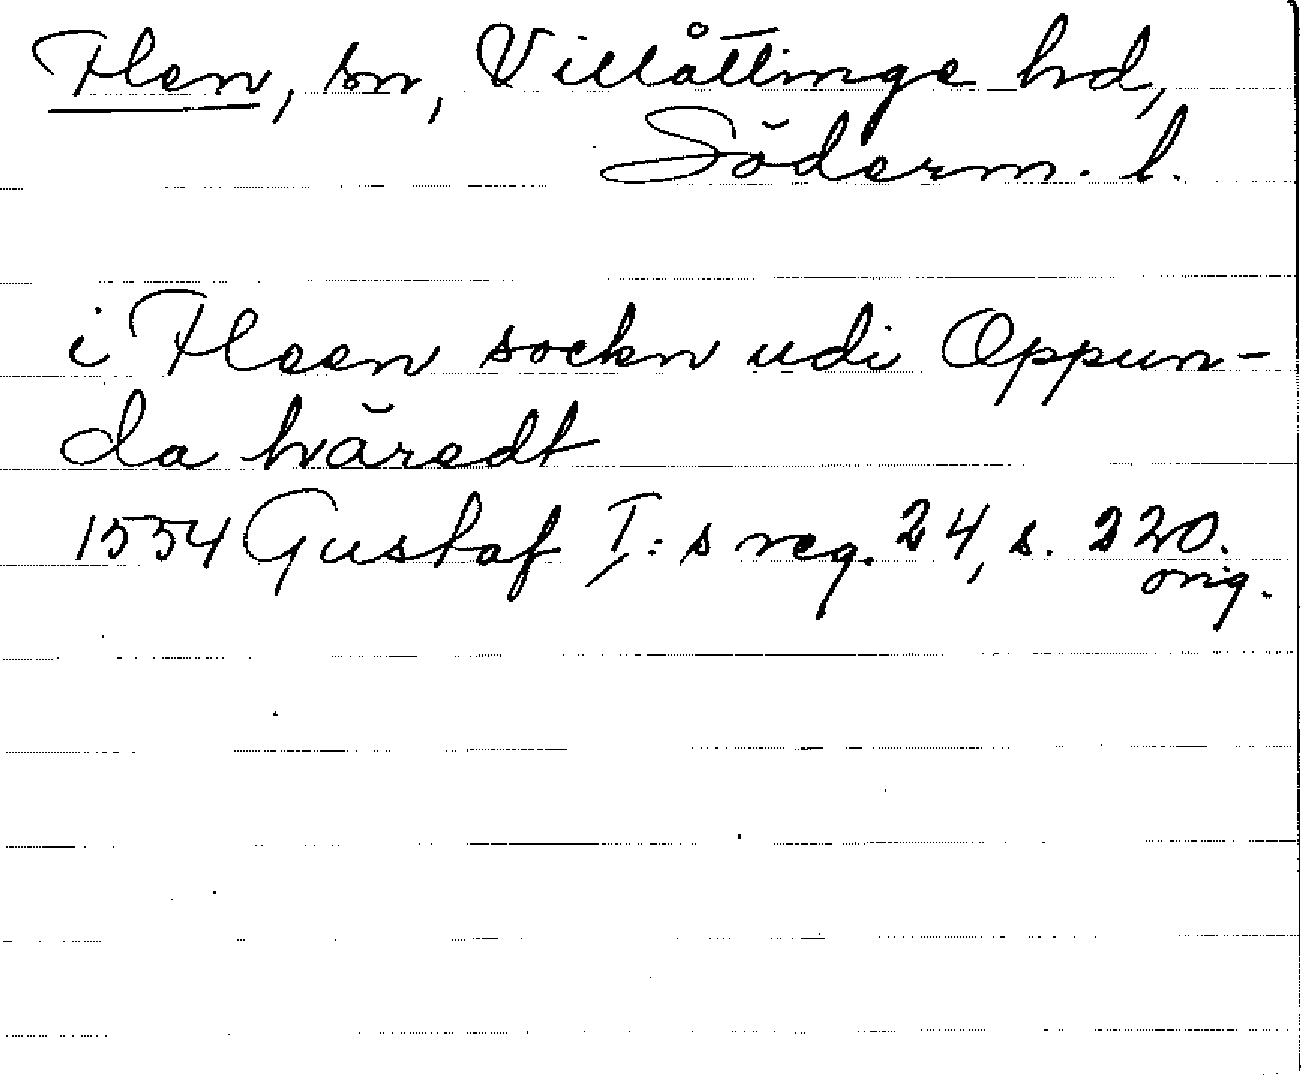 Flen, sn, Villåttinge hd,
Söderm. l.
i Fleen sockn udi Oppun-
da häredt
1554 Gustaf I:s reg. 24, s. 220.
orig.